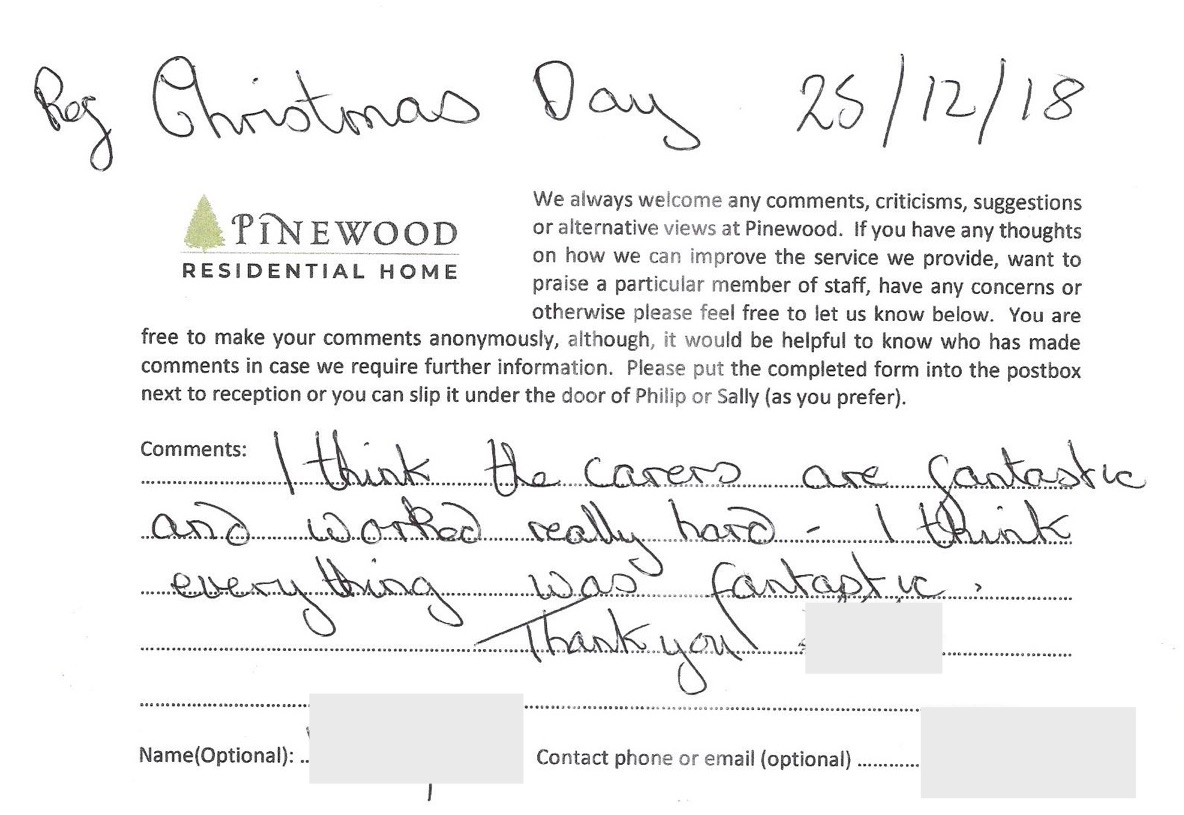 Reg Christmas Day 25/12/18
PINEWOOD
RESIDENTIAL HOME
We always welcome any comments, criticisms, suggestions
or alternative views at Pinewood. If you have any thoughts
on how we can improve the service we provide, want to
praise a particular member of staff, have any concerns or
otherwise please feel free to let us know below. You are
free to make your comments anonymously, although, it would be helpful to know who has made
comments in case we require further information. Please put the completed form into the postbox
next to reception or you can slip it under the door of Philip or Sally (as you prefer).
Comments: I think the carers are fantastic
and worked really hard - I think
everything was fantaptic.
Thank you
Name(Optional): ..
Contact phone or email (optional) ............